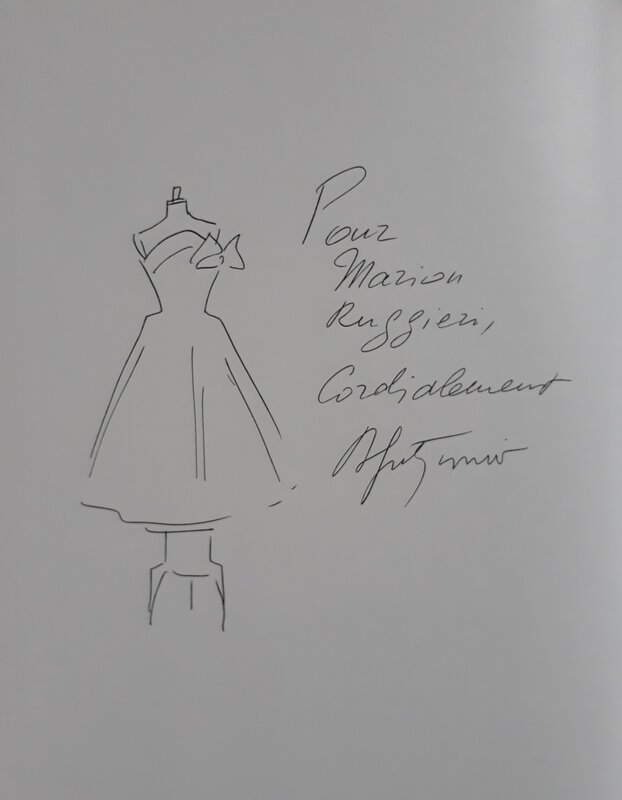 Pour
Marion
Ruggieri,
Cordialement